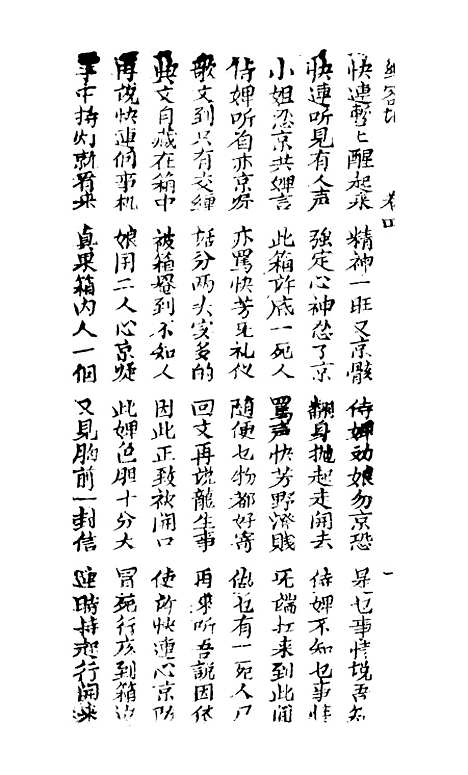 卷四 一
快連暫乜醒起來 精神一旺又京骸 侍婢劝娘勿京恐 是乜事情說吾知
快連听見有人声 強定心神怂了京 翻身抛起走開去 侍婢不知乜事情
小姐忍京共婢言 此箱許底一死人 罵声快芳野濟賤 旡端扛来到此間
侍婢听着亦京呀 亦罵快芳旡礼仪 隨便乜物都好寄 做乜有一死人尸
歌文到只有交纏 話分两头实多的 回文再說龍生事 再来听吾説因依
典文自藏在箱中 被箱到不知人 因此正致被開口 使許快連心京防
再説快連個事机 娘用二人心京疑 此婢色胆十分大 冒死行孩到箱边
手中持灯就看来 真果箱内人一個 又見胸前一封信 連時持起行開来